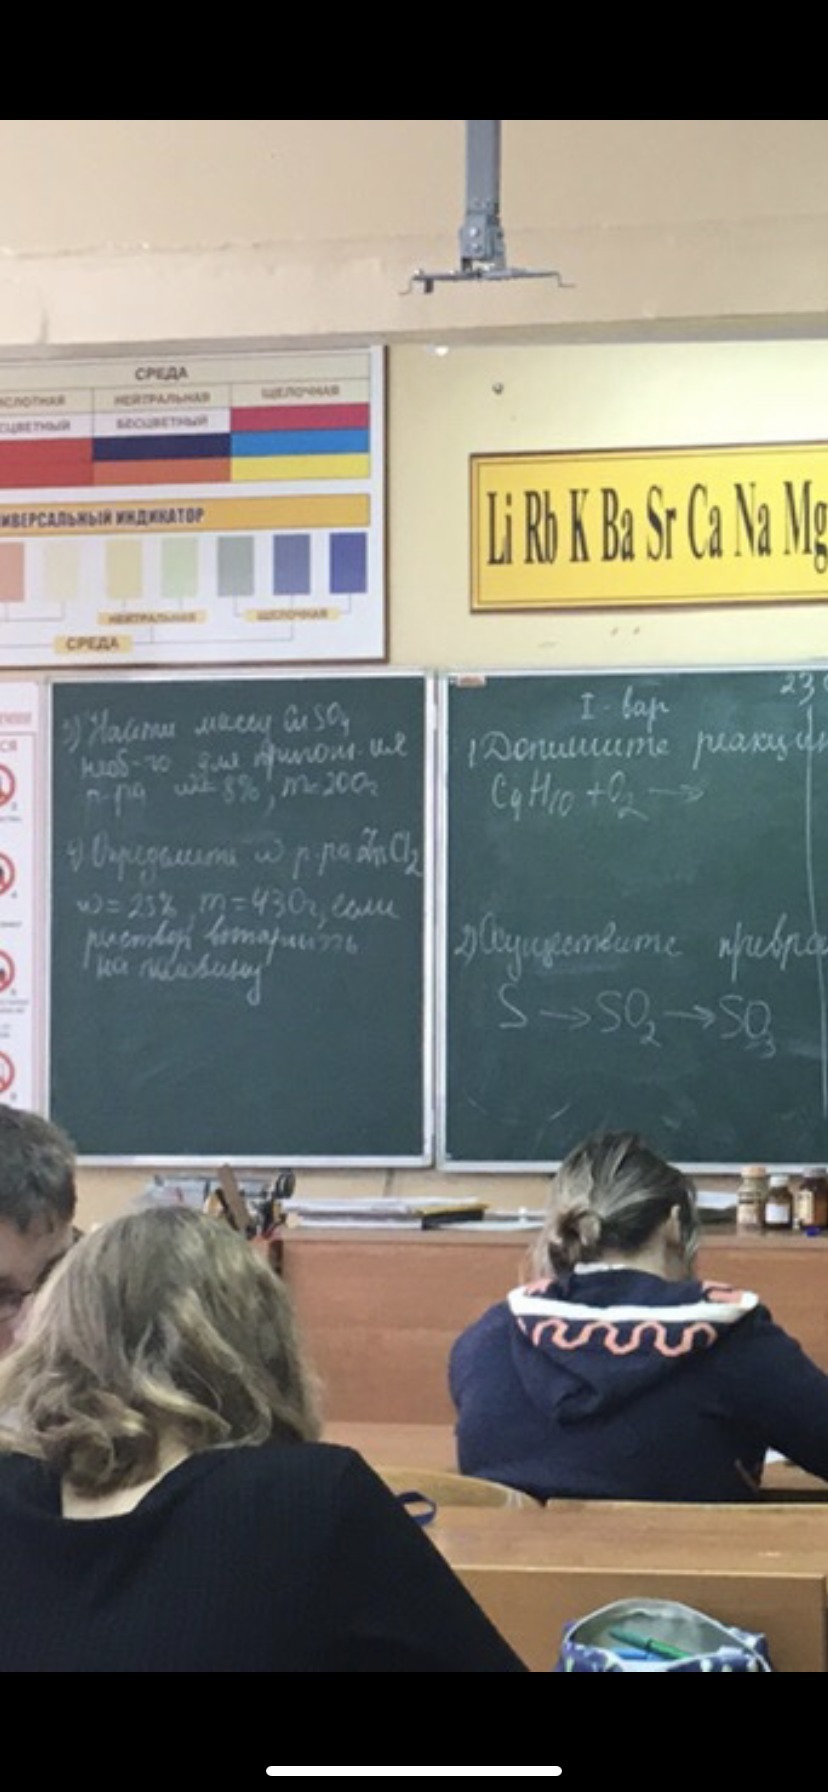 СРЕДА
НЕЙТРАЛЬНАЯ
ЩЕЛОЧНАЯ
БЕСЦВЕТНЫЙ
ИВЕРСАЛЬНЫЙ ИНДИКАТОР
НЕЙТРАЛЬНАЯ
ЩЕЛОЧНАЯ
СРЕДА
Li Rb K Ba Sr Ca Na Mg
3) Найти массу CuSO4
необ-го для пригот-ия
р-ра ω=8%, m=200г
4) Определите ω р-ра ZnCl2
ω=25%, m=430г, если
раствор выпарить
на половину
23
I-вар
1) Допишите реакции
C4H10 + O2 →
2) Осуществите превра
S → SO2 → SO3